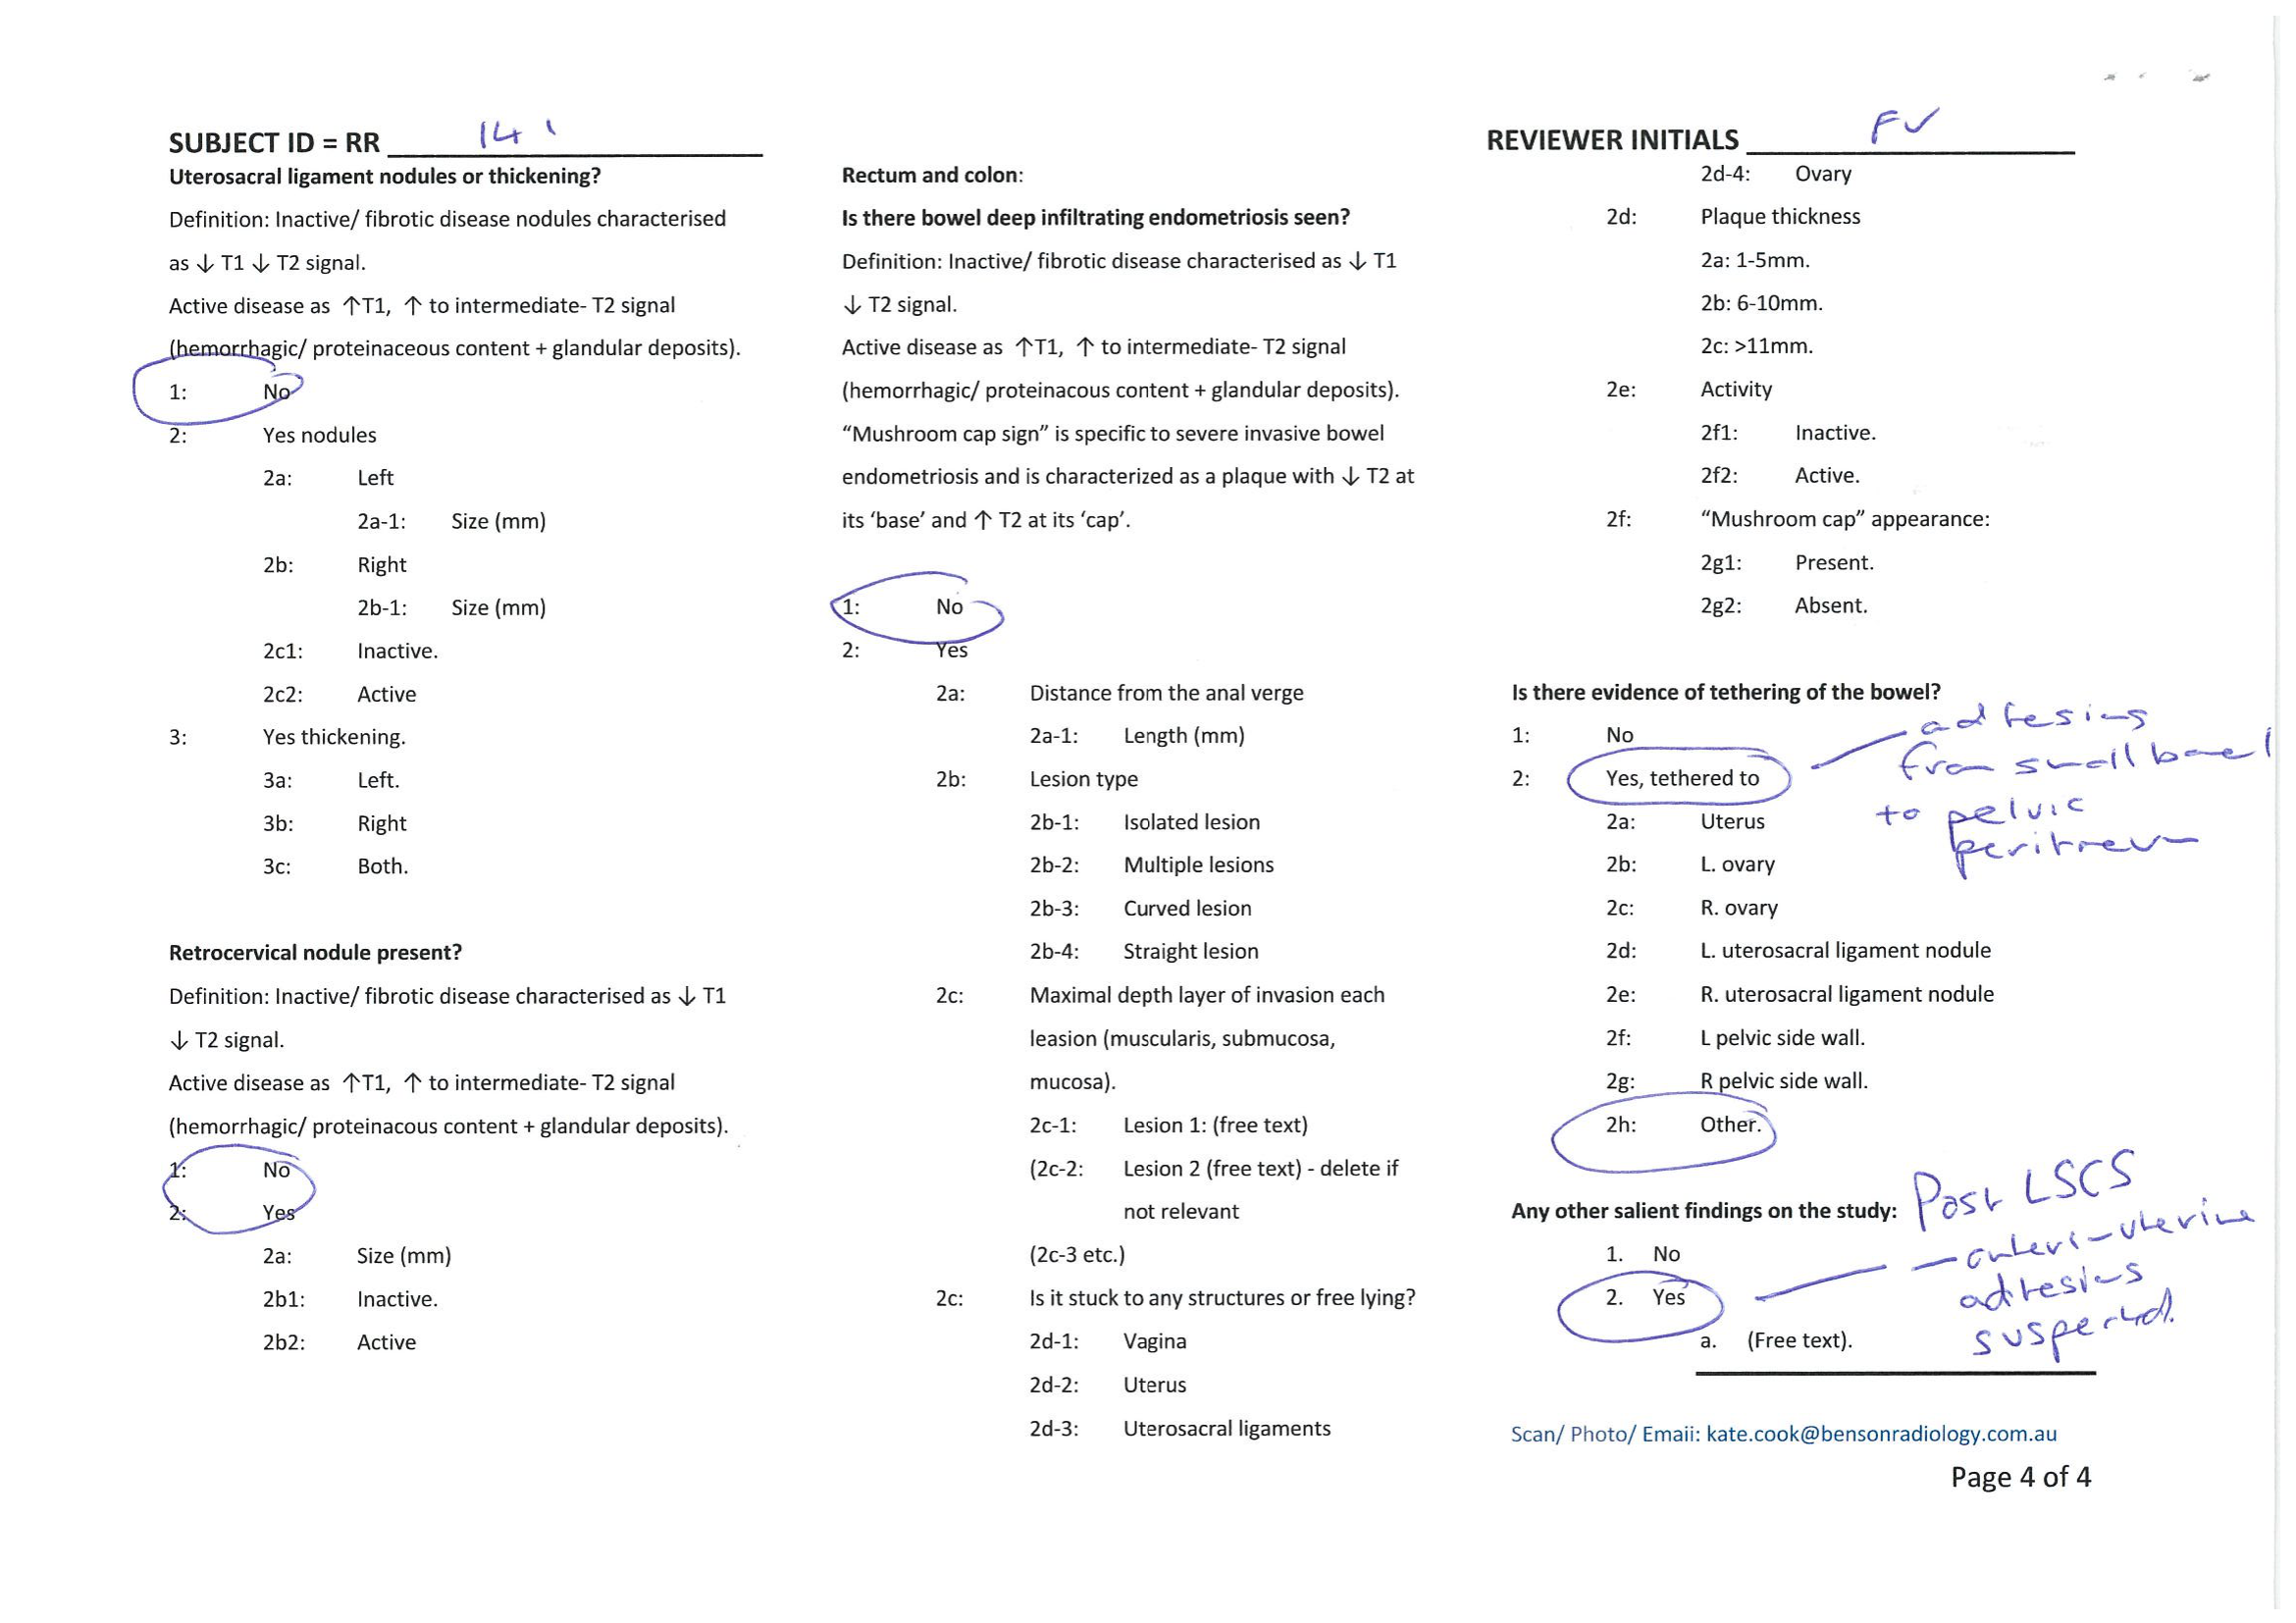 SUBJECT ID = RR 141
Uterosacral ligament nodules or thickening?
Definition: Inactive/ fibrotic disease nodules characterised
as ↓ T1 ↓ T2 signal.
Active disease as ↑T1, ↑ to intermediate- T2 signal
(hemorrhagic/ proteinaceous content + glandular deposits).
1: No
2: Yes nodules
2a: Left
2a-1: Size (mm)
2b: Right
2b-1: Size (mm)
2c1: Inactive.
2c2: Active
3: Yes thickening.
3a: Left.
3b: Right
3c: Both.
Retrocervical nodule present?
Definition: Inactive/ fibrotic disease characterised as ↓ T1
↓ T2 signal.
Active disease as ↑T1, ↑ to intermediate- T2 signal
(hemorrhagic/ proteinacous content + glandular deposits).
1: No
2: Yes
2a: Size (mm)
2b1: Inactive.
2b2: Active
Rectum and colon:
Is there bowel deep infiltrating endometriosis seen?
Definition: Inactive/ fibrotic disease characterised as ↓ T1
↓ T2 signal.
Active disease as ↑T1, ↑ to intermediate- T2 signal
(hemorrhagic/ proteinacous content + glandular deposits).
“Mushroom cap sign” is specific to severe invasive bowel
endometriosis and is characterized as a plaque with ↓ T2 at
its ‘base’ and ↑ T2 at its ‘cap’.
1: No
2: Yes
2a: Distance from the anal verge
2a-1: Length (mm)
2b: Lesion type
2b-1: Isolated lesion
2b-2: Multiple lesions
2b-3: Curved lesion
2b-4: Straight lesion
2c: Maximal depth layer of invasion each
leasion (muscularis, submucosa,
mucosa).
2c-1: Lesion 1: (free text)
(2c-2: Lesion 2 (free text) - delete if
not relevant
(2c-3 etc.)
2c: Is it stuck to any structures or free lying?
2d-1: Vagina
2d-2: Uterus
2d-3: Uterosacral ligaments
REVIEWER INITIALS FV
2d-4: Ovary
2d: Plaque thickness
2a: 1-5mm.
2b: 6-10mm.
2c: >11mm.
2e: Activity
2f1: Inactive.
2f2: Active.
2f: “Mushroom cap” appearance:
2g1: Present.
2g2: Absent.
Is there evidence of tethering of the bowel?
1: No
2: Yes, tethered to
adhesions
from small bowel
to pelvic
peritoneum
2a: Uterus
2b: L. ovary
2c: R. ovary
2d: L. uterosacral ligament nodule
2e: R. uterosacral ligament nodule
2f: L pelvic side wall.
2g: R pelvic side wall.
2h: Other.
Any other salient findings on the study:
1. No
2. Yes
Post LSCS
– antero-uterine
adhesions
suspected.
a. (Free text).
Scan/ Photo/ Email: kate.cook@bensonradiology.com.au
Page 4 of 4